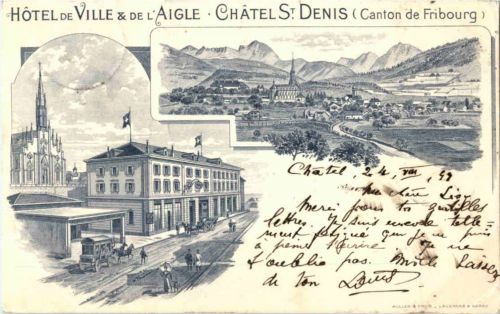 HÔTEL DE VILLE & DE L'AIGLE · CHÂTEL ST DENIS (Canton de Fribourg)
Châtel, 24,
Merci pour tes gentilles
lettres. Je suis encore telle-
ment fatiguée que je puis
à peine t'écrire. Je ne
t'oublie pas. Mille baisers
de ton